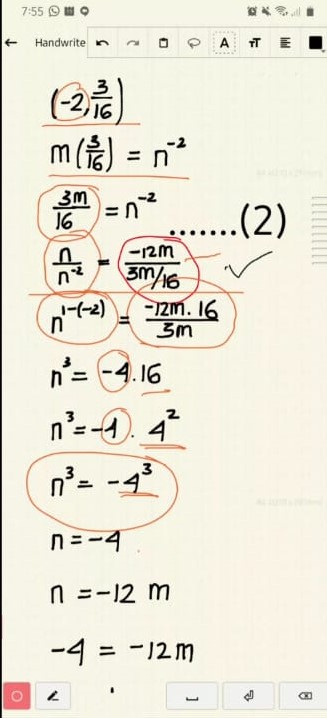 7:55
← Handwrite A T
(-2, 3/16)
m(3/16) = n^-2
3m/16 = n^-2 .......(2)
n/n^-2 = -12m/(3m/16)
n^1-(-2) = -12m.16/3m
n^3 = -4.16
n^3 = -4. 4^2
n^3 = -4^3
n = -4
n = -12 m
-4 = -12m